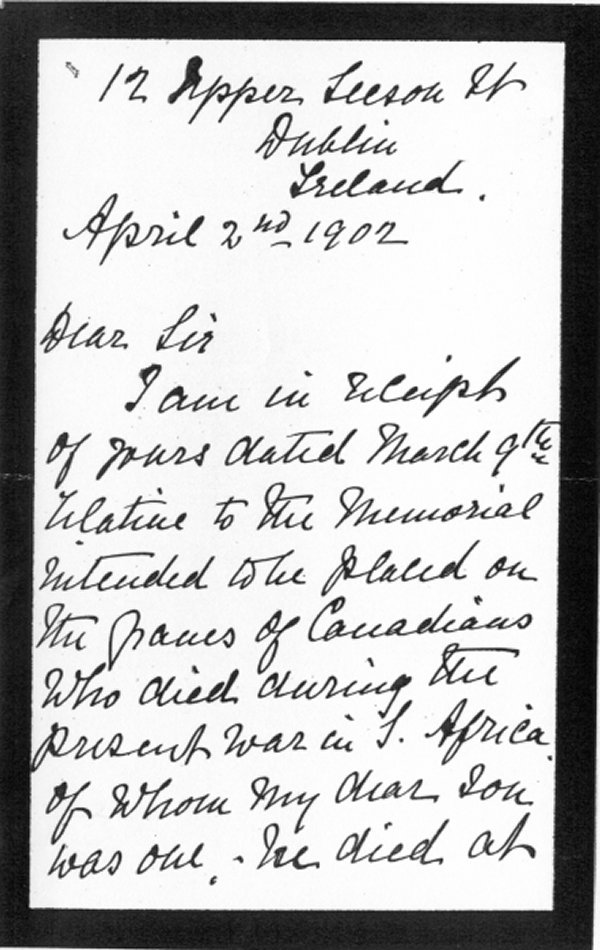 12 Upper Leeson St
Dublin
Ireland.
April 2nd 1902
Dear Sir
I am in receipt
of yours dated March 9th
relative to the Memorial
intended to be placed on
the graves of Canadians
who died during the
present war in S. Africa
of whom my dear son
was one. - He died at